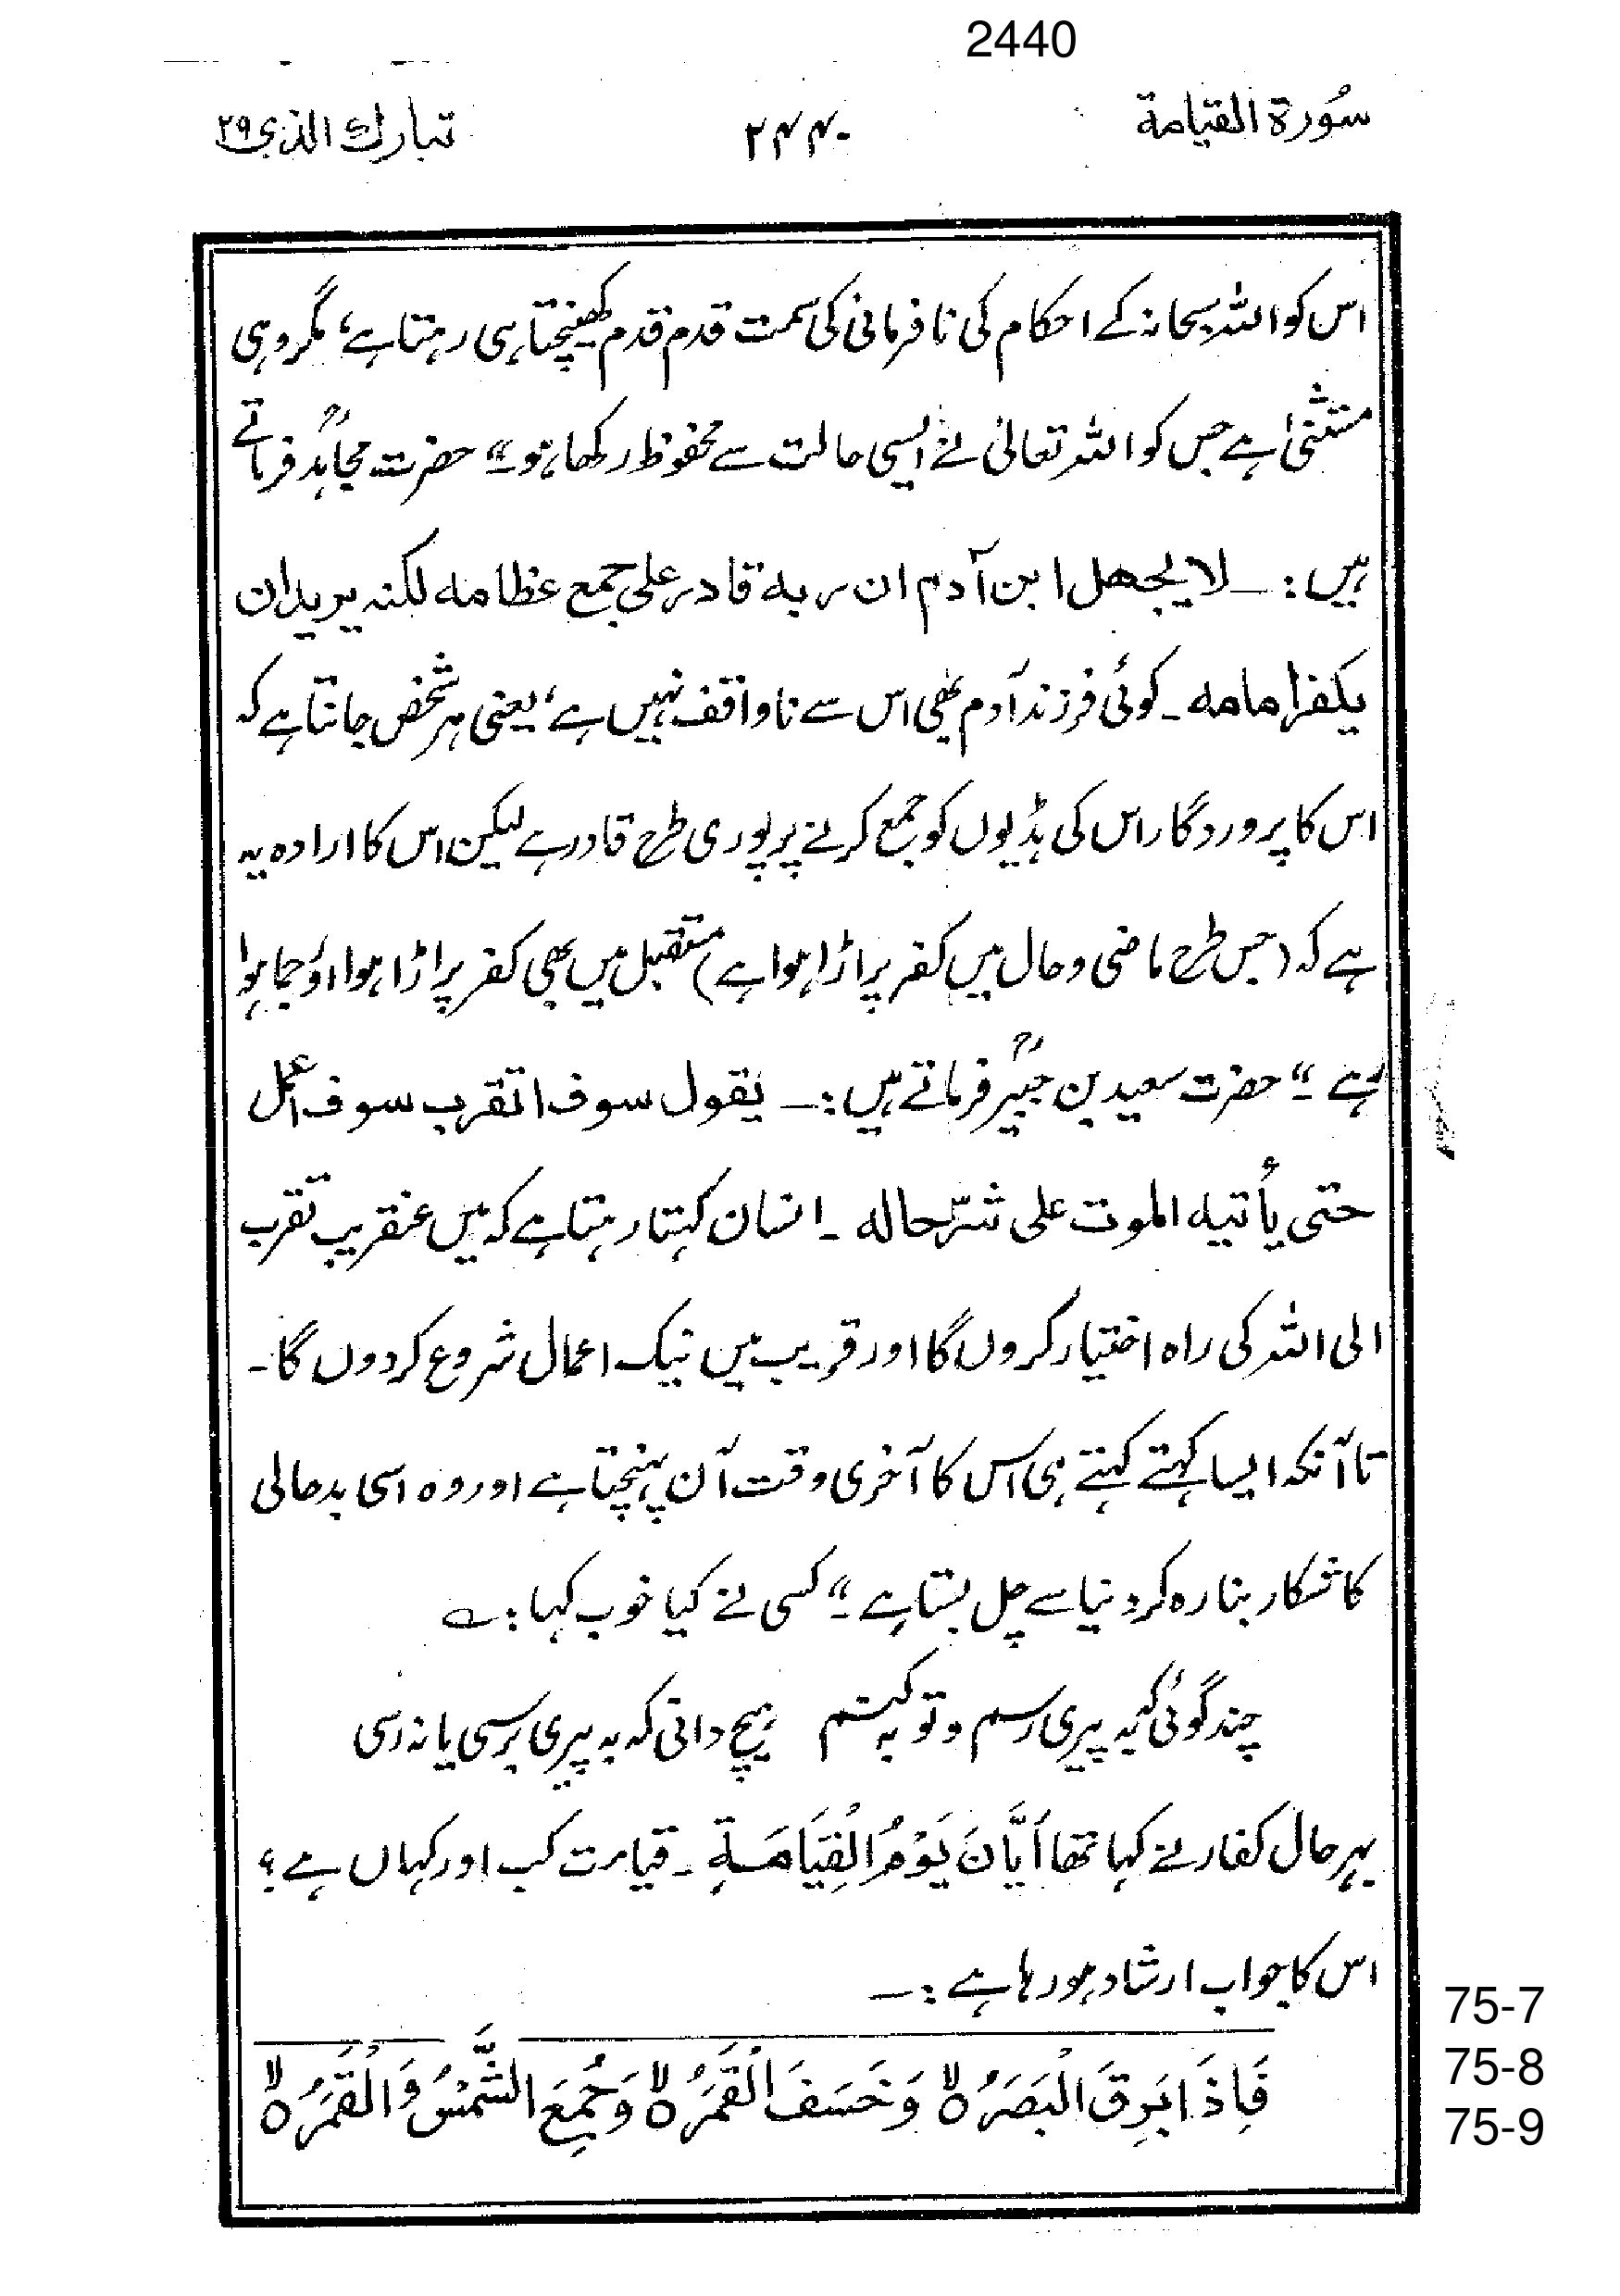 2440
سُورة القيامة ۲۴۴۰ تبارك الذی ۲۹
اس کو اللہ سبحانہ کے احکام کی نافرمانی کی سمت قدم قدم کھینچتا ہی رہتا ہے، مگر وہی
مستثنیٰ ہے جس کو اللہ تعالیٰ نے ایسی حالت سے محفوظ رکھا ہو۔“ حضرت مجاہدؒ فرماتے
ہیں :۔ لا يجهل ابن آدم ان ربه قادر علی جمع عظامه لكنه يريد ان
يكفر امامه ۔ کوئی فرزند آدم بھی اس سے ناواقف نہیں ہے، یعنی ہر شخص جانتا ہے کہ
اس کا پروردگار اس کی ہڈیوں کو جمع کرنے پر پوری طرح قادر ہے لیکن اس کا ارادہ یہ
ہے کہ (جس طرح ماضی و حال میں کفر پر اڑا ہوا ہے) مستقبل میں بھی کفر پر اڑا ہوا اور جما ہوا
رہے ۔“ حضرت سعید بن جبیرؒ فرماتے ہیں :۔ يقول سوف اتقرب سوف اعمل
حتی يأتيه الموت علی شرّ حاله ۔ انسان کہتا رہتا ہے کہ میں عنقریب تقرب
الی اللہ کی راہ اختیار کروں گا اور قریب میں نیک اعمال شروع کردوں گا۔
تا آنکہ ایسا کہتے کہتے ہی اس کا آخری وقت آن پہنچتا ہے اور وہ اسی بدحالی
کا شکار بنا رہ کر دنیا سے چل بستا ہے ۔“ کسی نے کیا خوب کہا :۔ ؎
چند گوئی کہ بہ پیری رسم و توبہ کنم ہیچ دانی کہ بہ پیری برسی یا نہ رسی
بہر حال کفار نے کہا تھا اَيَّانَ يَوْمُ الْقِيَامَةِ ۔ قیامت کب اور کہاں ہے ؟
اس کا جواب ارشاد ہو رہا ہے :۔
فَاِذَا بَرِقَ الْبَصَرُ ۙ وَخَسَفَ الْقَمَرُ ۙ وَجُمِعَ الشَّمْسُ وَالْقَمَرُ ۙ
75-7
75-8
75-9